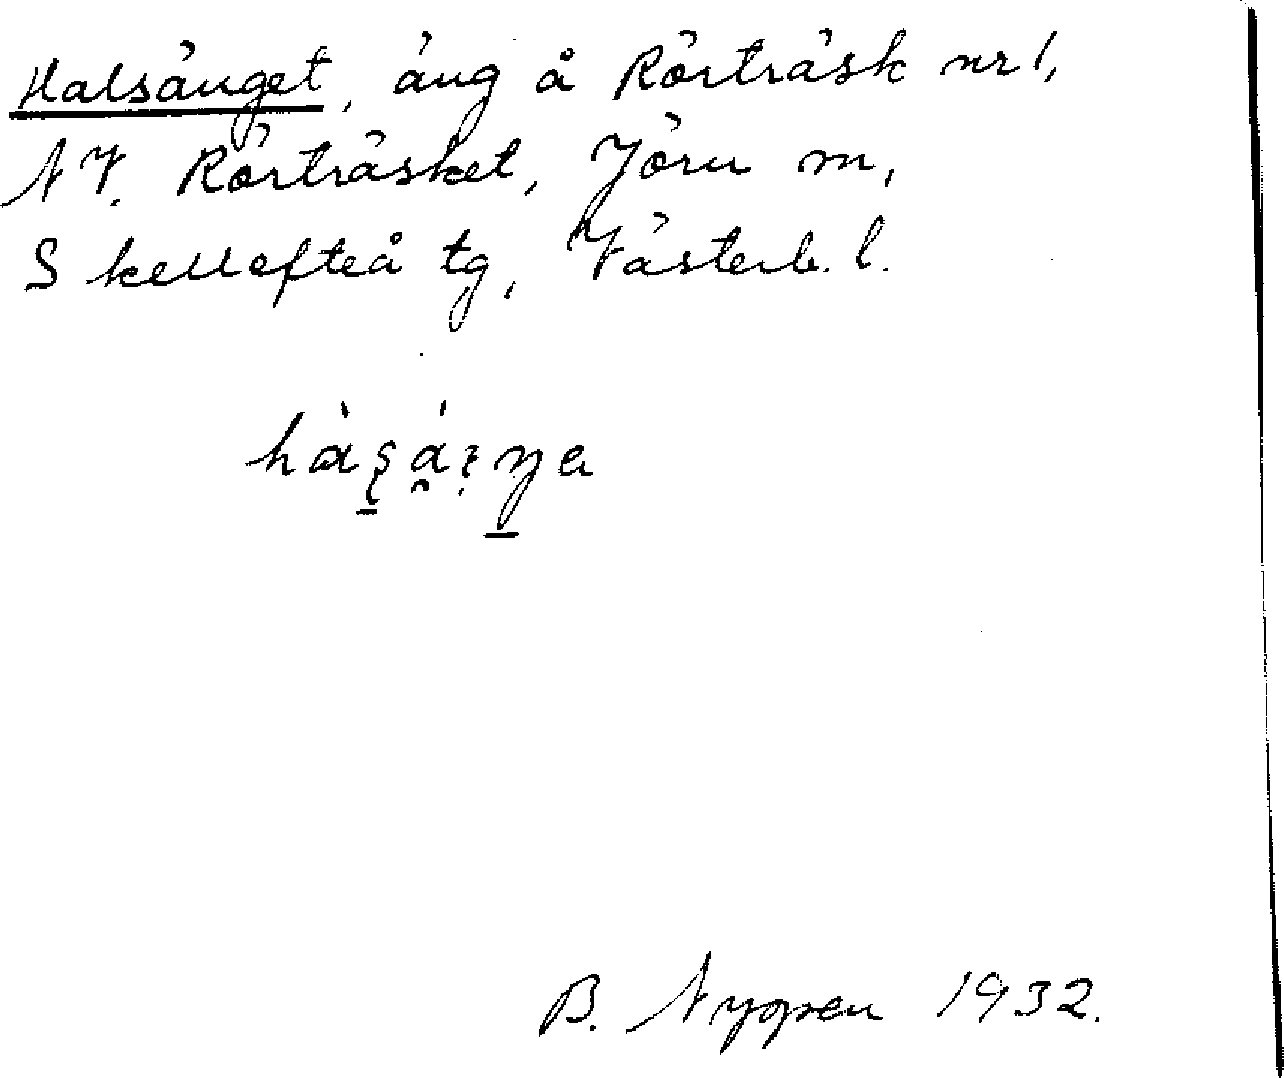 Halsänget, äng å Rörträsk nr 1,
N V. Rörträsket, Jörn m,
Skellefteå tg, Västerb. l.
B. Nygren 1932.